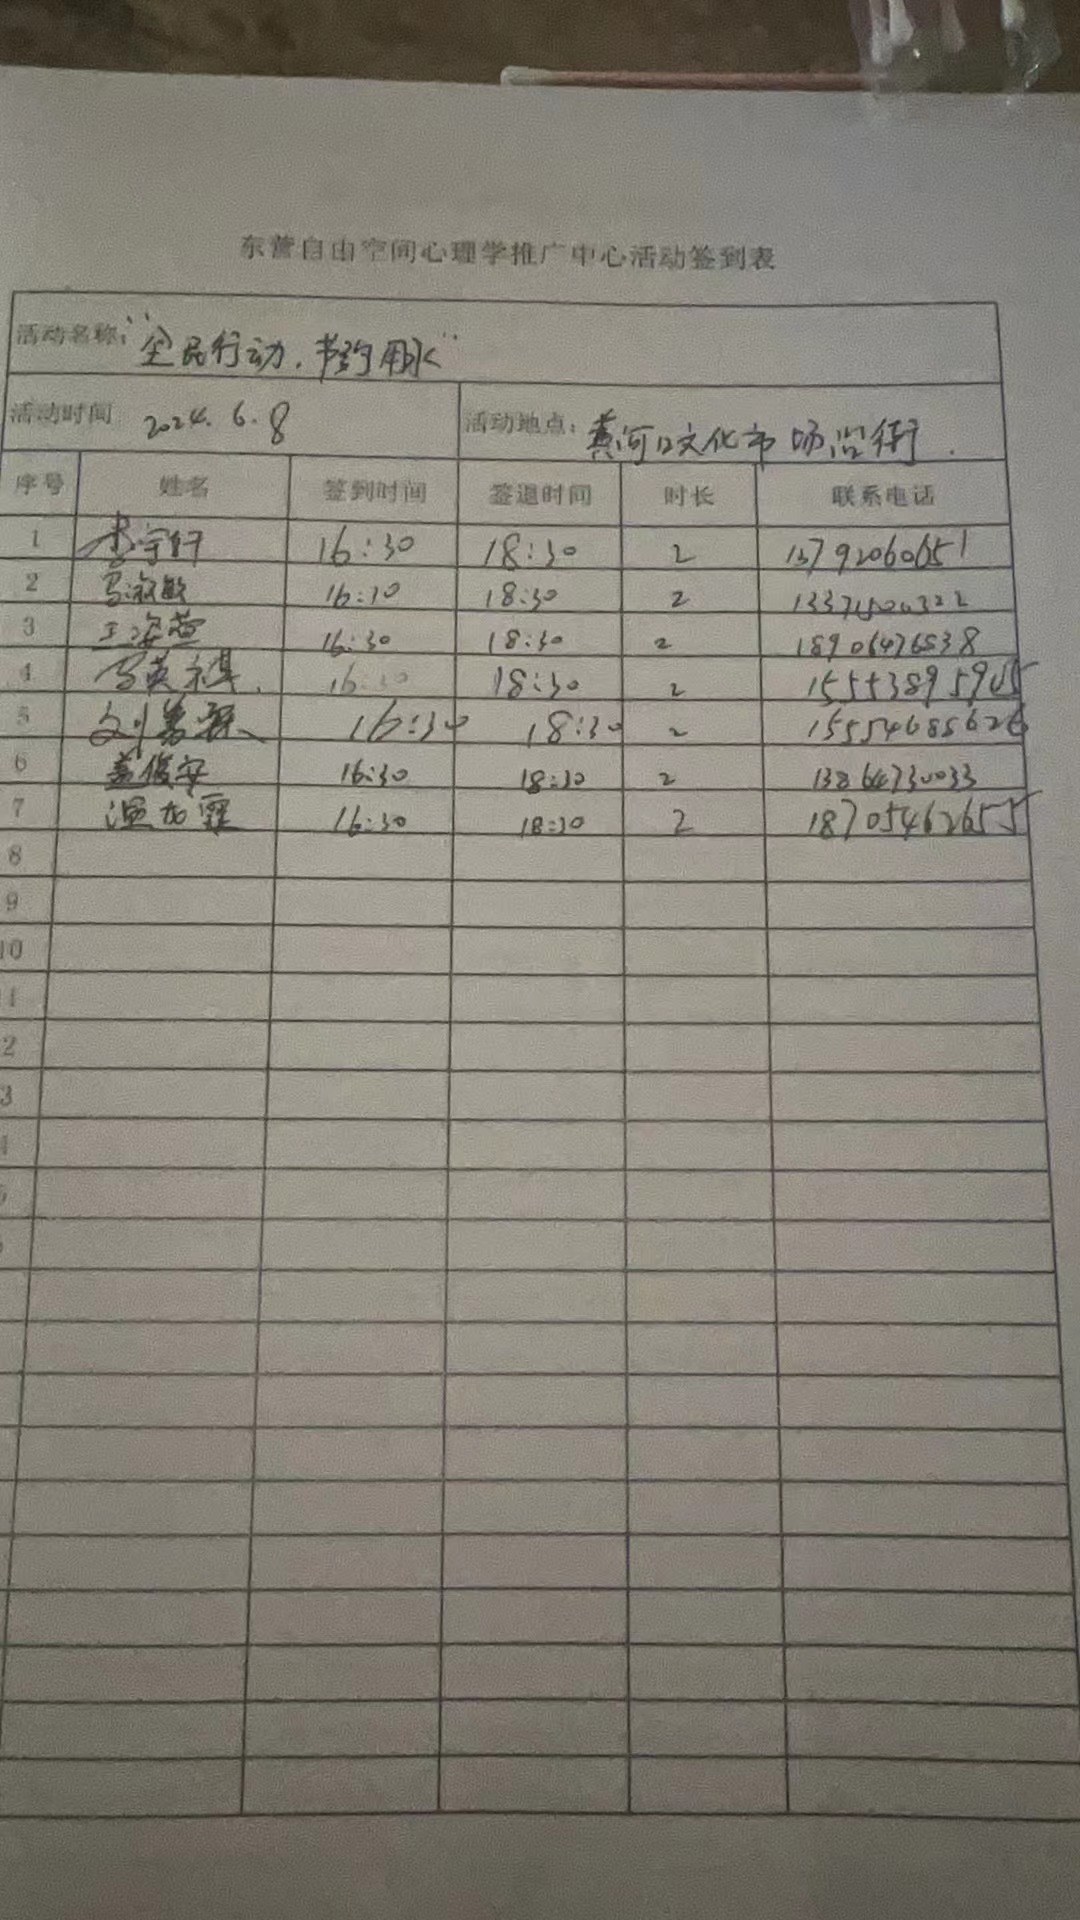 东营自由空间心理学推广中心活动签到表
活动名称："全民行动.节约用水"
活动时间 2024.6.8 活动地点：黄河口文化市场沿街.
序号 姓名 签到时间 签退时间 时长 联系电话
1 李宇轩 16:30 18:30 2 13792060651
2 16:30 18:30 2
3 王姿萱 16:30 18:30 2 18906476538
4 16:30 18:30 2
5 16:30 18:30 2 15554685626
6 盖俊安 16:30 18:30 2 13864730033
7 温加霖 16:30 18:30 2 18705462655
8
9
10